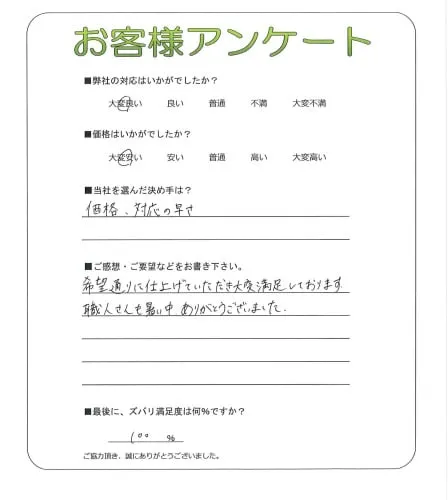 お客様アンケート
■弊社の対応はいかがでしたか？
大変良い 良い 普通 不満 大変不満
■価格はいかがでしたか？
大変安い 安い 普通 高い 大変高い
■当社を選んだ決め手は？
価格、対応の早さ
■ご感想・ご要望などをお書き下さい。
希望通りに仕上げていただき大変満足しております
職人さんも暑い中ありがとうございました。
■最後に、ズバリ満足度は何％ですか？
100 %
ご協力頂き、誠にありがとうございました。